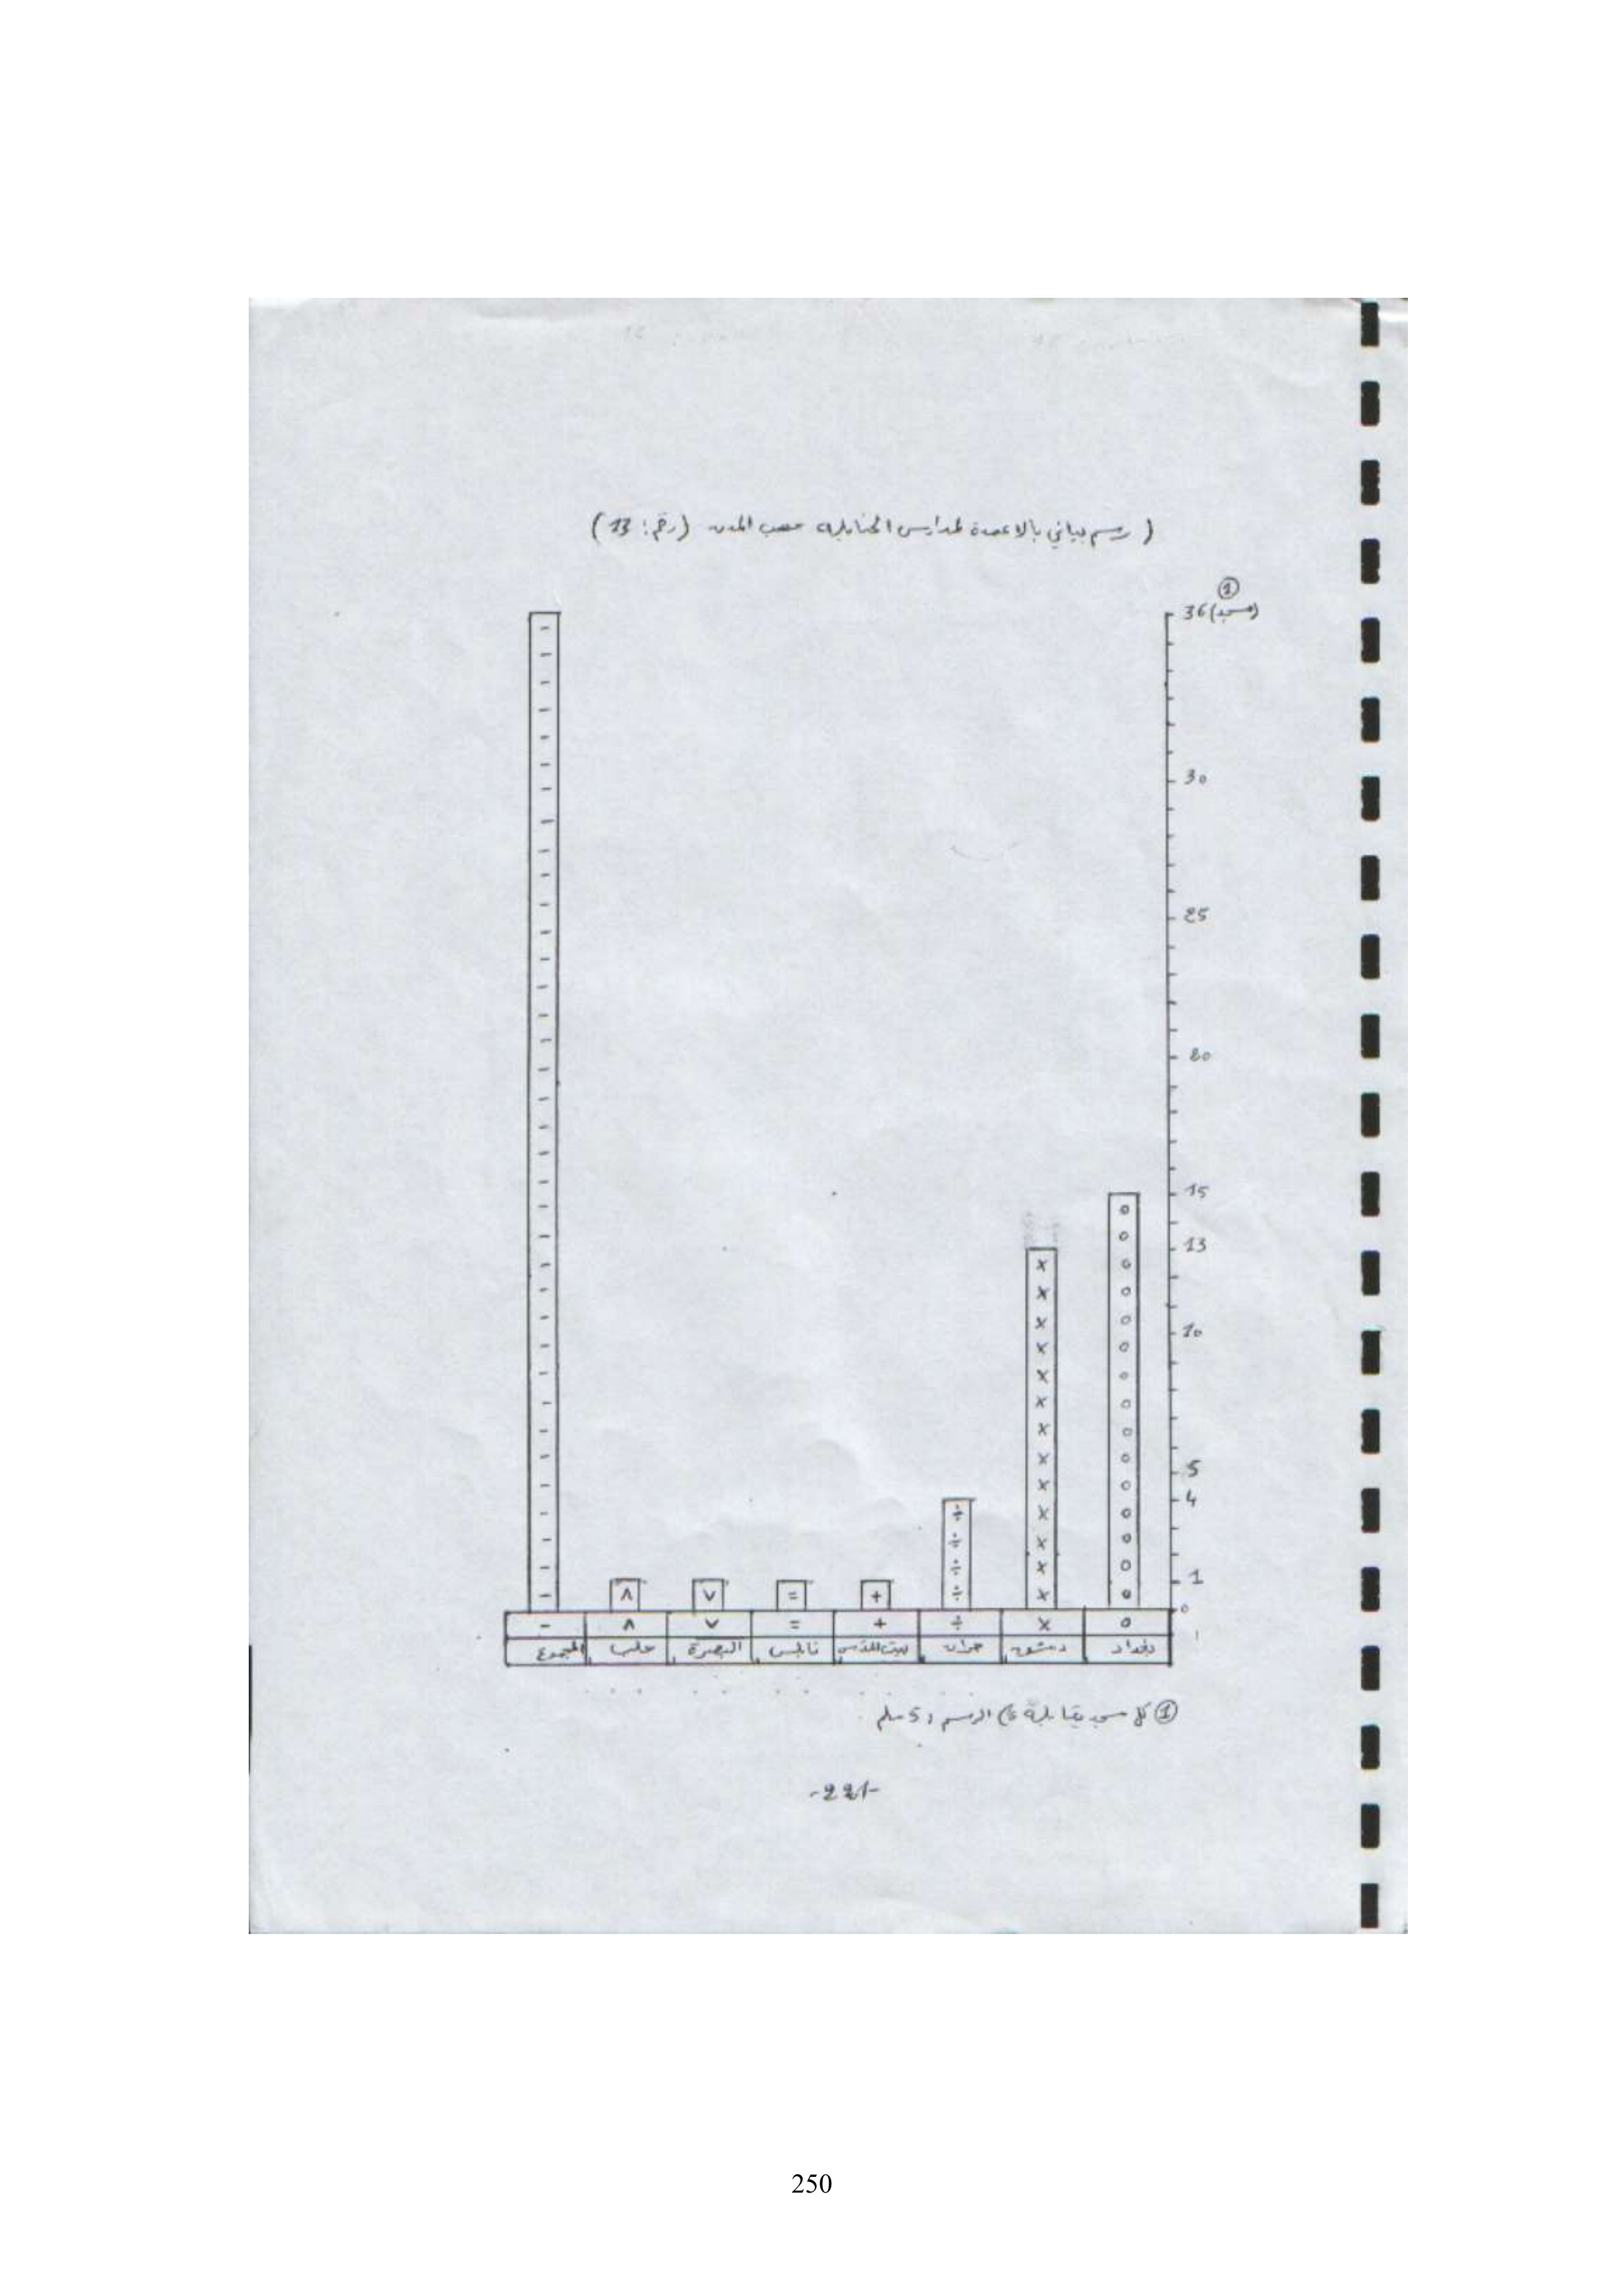 ( رسم بياني بالاعمدة لمدارس الحنابلة حسب المدن (رقم: 13)
①
36 (مسجد)
30
25
20
15
13
10
5
4
1
0
o × ÷ + = ∨ ∧ -
بغداد دمشق حران بيت المقدس نابلس البصرة حلب المجموع
① كل مسجد يقابله في الرسم
-221-
250